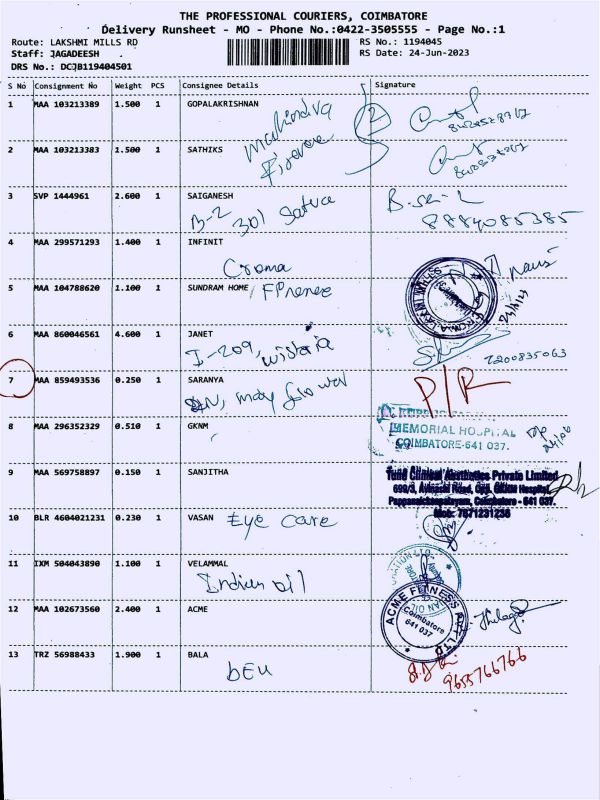 THE PROFESSIONAL COURIERS, COIMBATORE
Delivery Runsheet - MO - Phone No.:0422-3505555 - Page No.:1
Route: LAKSHMI MILLS RD
RS No.: 1194045
Staff: JAGADEESH
RS Date: 24-Jun-2023
DRS No.: DCJB119404501
S No Consignment No Weight PCS Consignee Details Signature
1 MAA 103213389 1.500 1 GOPALAKRISHNAN
Mahindra
2 MAA 103213383 1.500 1 SATHIKS
3 SVP 1444961 2.600 1 SAIGANESH
B-2 301
8884085385
4 MAA 299571293 1.400 1 INFINIT
Croma
5 MAA 104788620 1.100 1 SUNDRAM HOME
6 MAA 860046561 4.600 1 JANET
I-209, wistaria
7200835063
7 MAA 859493536 0.250 1 SARANYA
P/R
8 MAA 296352329 0.510 1 GKNM
MEMORIAL HOSPITAL
COIMBATORE-641 037.
9 MAA 569758897 0.150 1 SANJITHA
Tune Clinical Aesthetics Private Limited
699/3, Avinashi Road, Opp. GKNM Hospital,
Pappanaickenpalayam, Coimbatore - 641 037.
Mob: 7871231236
10 BLR 4604021231 0.230 1 VASAN Eye care
11 IXM 504043890 1.100 1 VELAMMAL
Indian oil
12 MAA 102673560 2.400 1 ACME
ACME FITNESS PVT LTD
Coimbatore
641 037
13 TRZ 56988433 1.900 1 BALA
9655766766